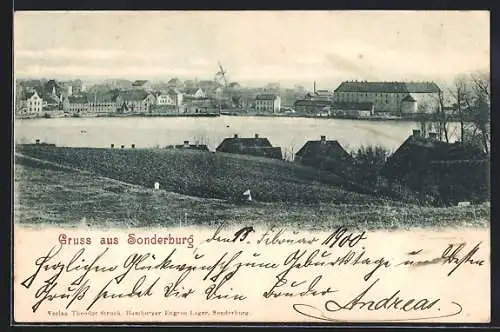 Gruss aus Sonderburg den 15. Februar 1900
Herzlichen Glückwunsch zum Geburtstage und besten
Gruß sendet Dir Dein Bruder Andreas.
Verlag Theodor Struck, Hamburger Engros-Lager, Sonderburg.